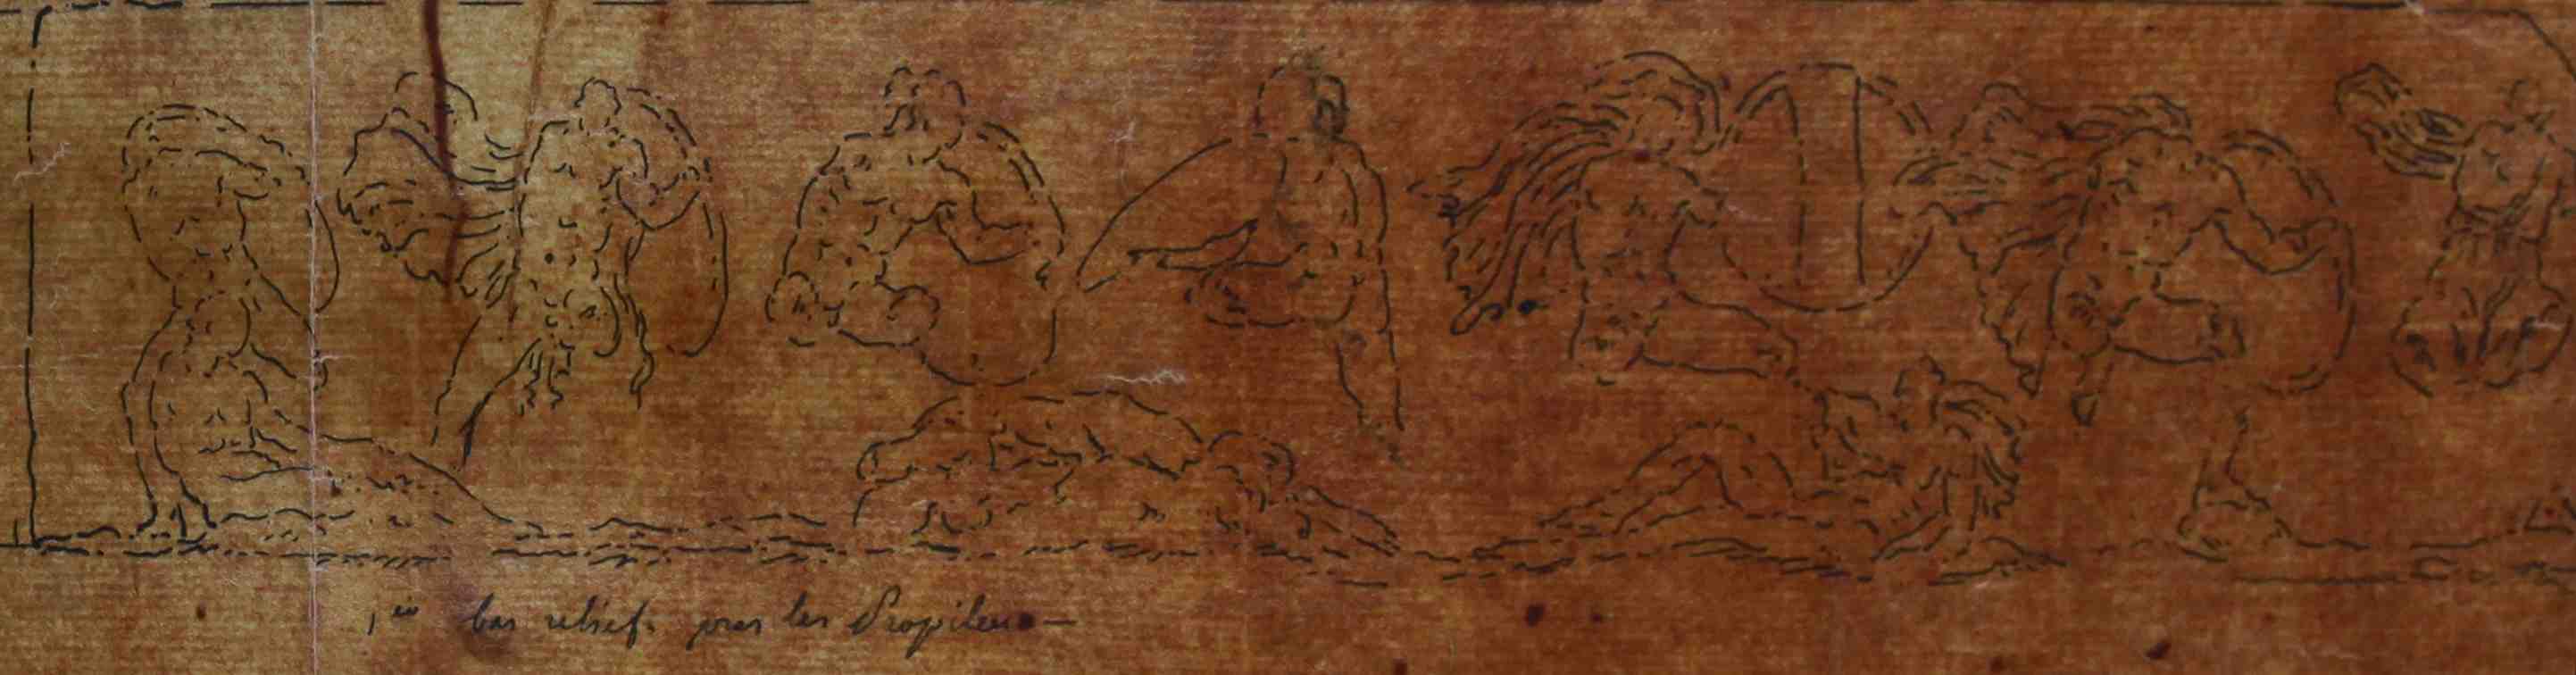 1er bas relief. pres les Propileus—